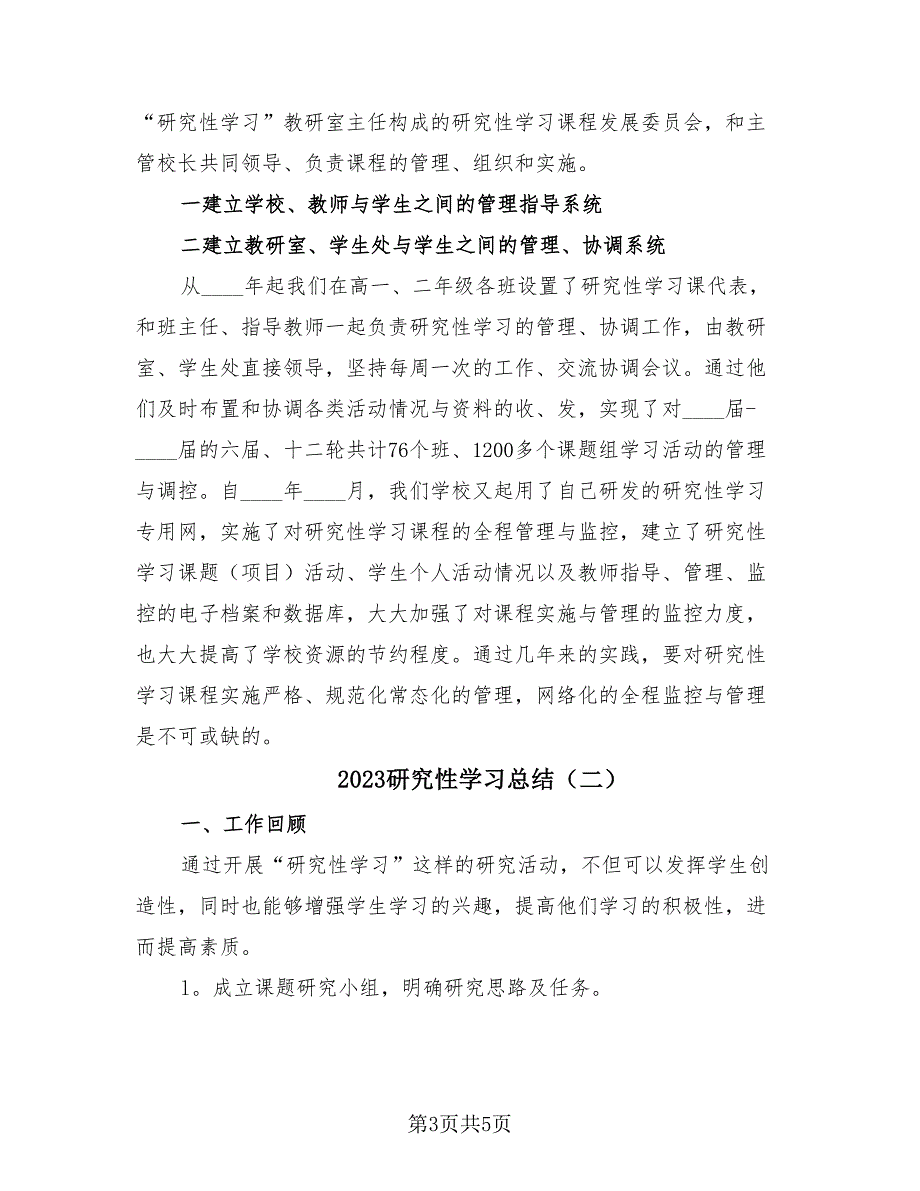 “研究性学习”教研室主任构成的研究性学习课程发展委员会，和主
管校长共同领导、负责课程的管理、组织和实施。
一建立学校、教师与学生之间的管理指导系统
二建立教研室、学生处与学生之间的管理、协调系统
从____年起我们在高一、二年级各班设置了研究性学习课代表，
和班主任、指导教师一起负责研究性学习的管理、协调工作，由教研
室、学生处直接领导，坚持每周一次的工作、交流协调会议。通过他
们及时布置和协调各类活动情况与资料的收、发，实现了对____届-
____届的六届、十二轮共计76个班、1200多个课题组学习活动的管理
与调控。自____年____月，我们学校又起用了自己研发的研究性学习
专用网，实施了对研究性学习课程的全程管理与监控，建立了研究性
学习课题（项目）活动、学生个人活动情况以及教师指导、管理、监
控的电子档案和数据库，大大加强了对课程实施与管理的监控力度，
也大大提高了学校资源的节约程度。通过几年来的实践，要对研究性
学习课程实施严格、规范化常态化的管理，网络化的全程监控与管理
是不可或缺的。
2023研究性学习总结（二）
一、工作回顾
通过开展“研究性学习”这样的研究活动，不但可以发挥学生创
造性，同时也能够增强学生学习的兴趣，提高他们学习的积极性，进
而提高素质。
1。成立课题研究小组，明确研究思路及任务。
第3页共5页